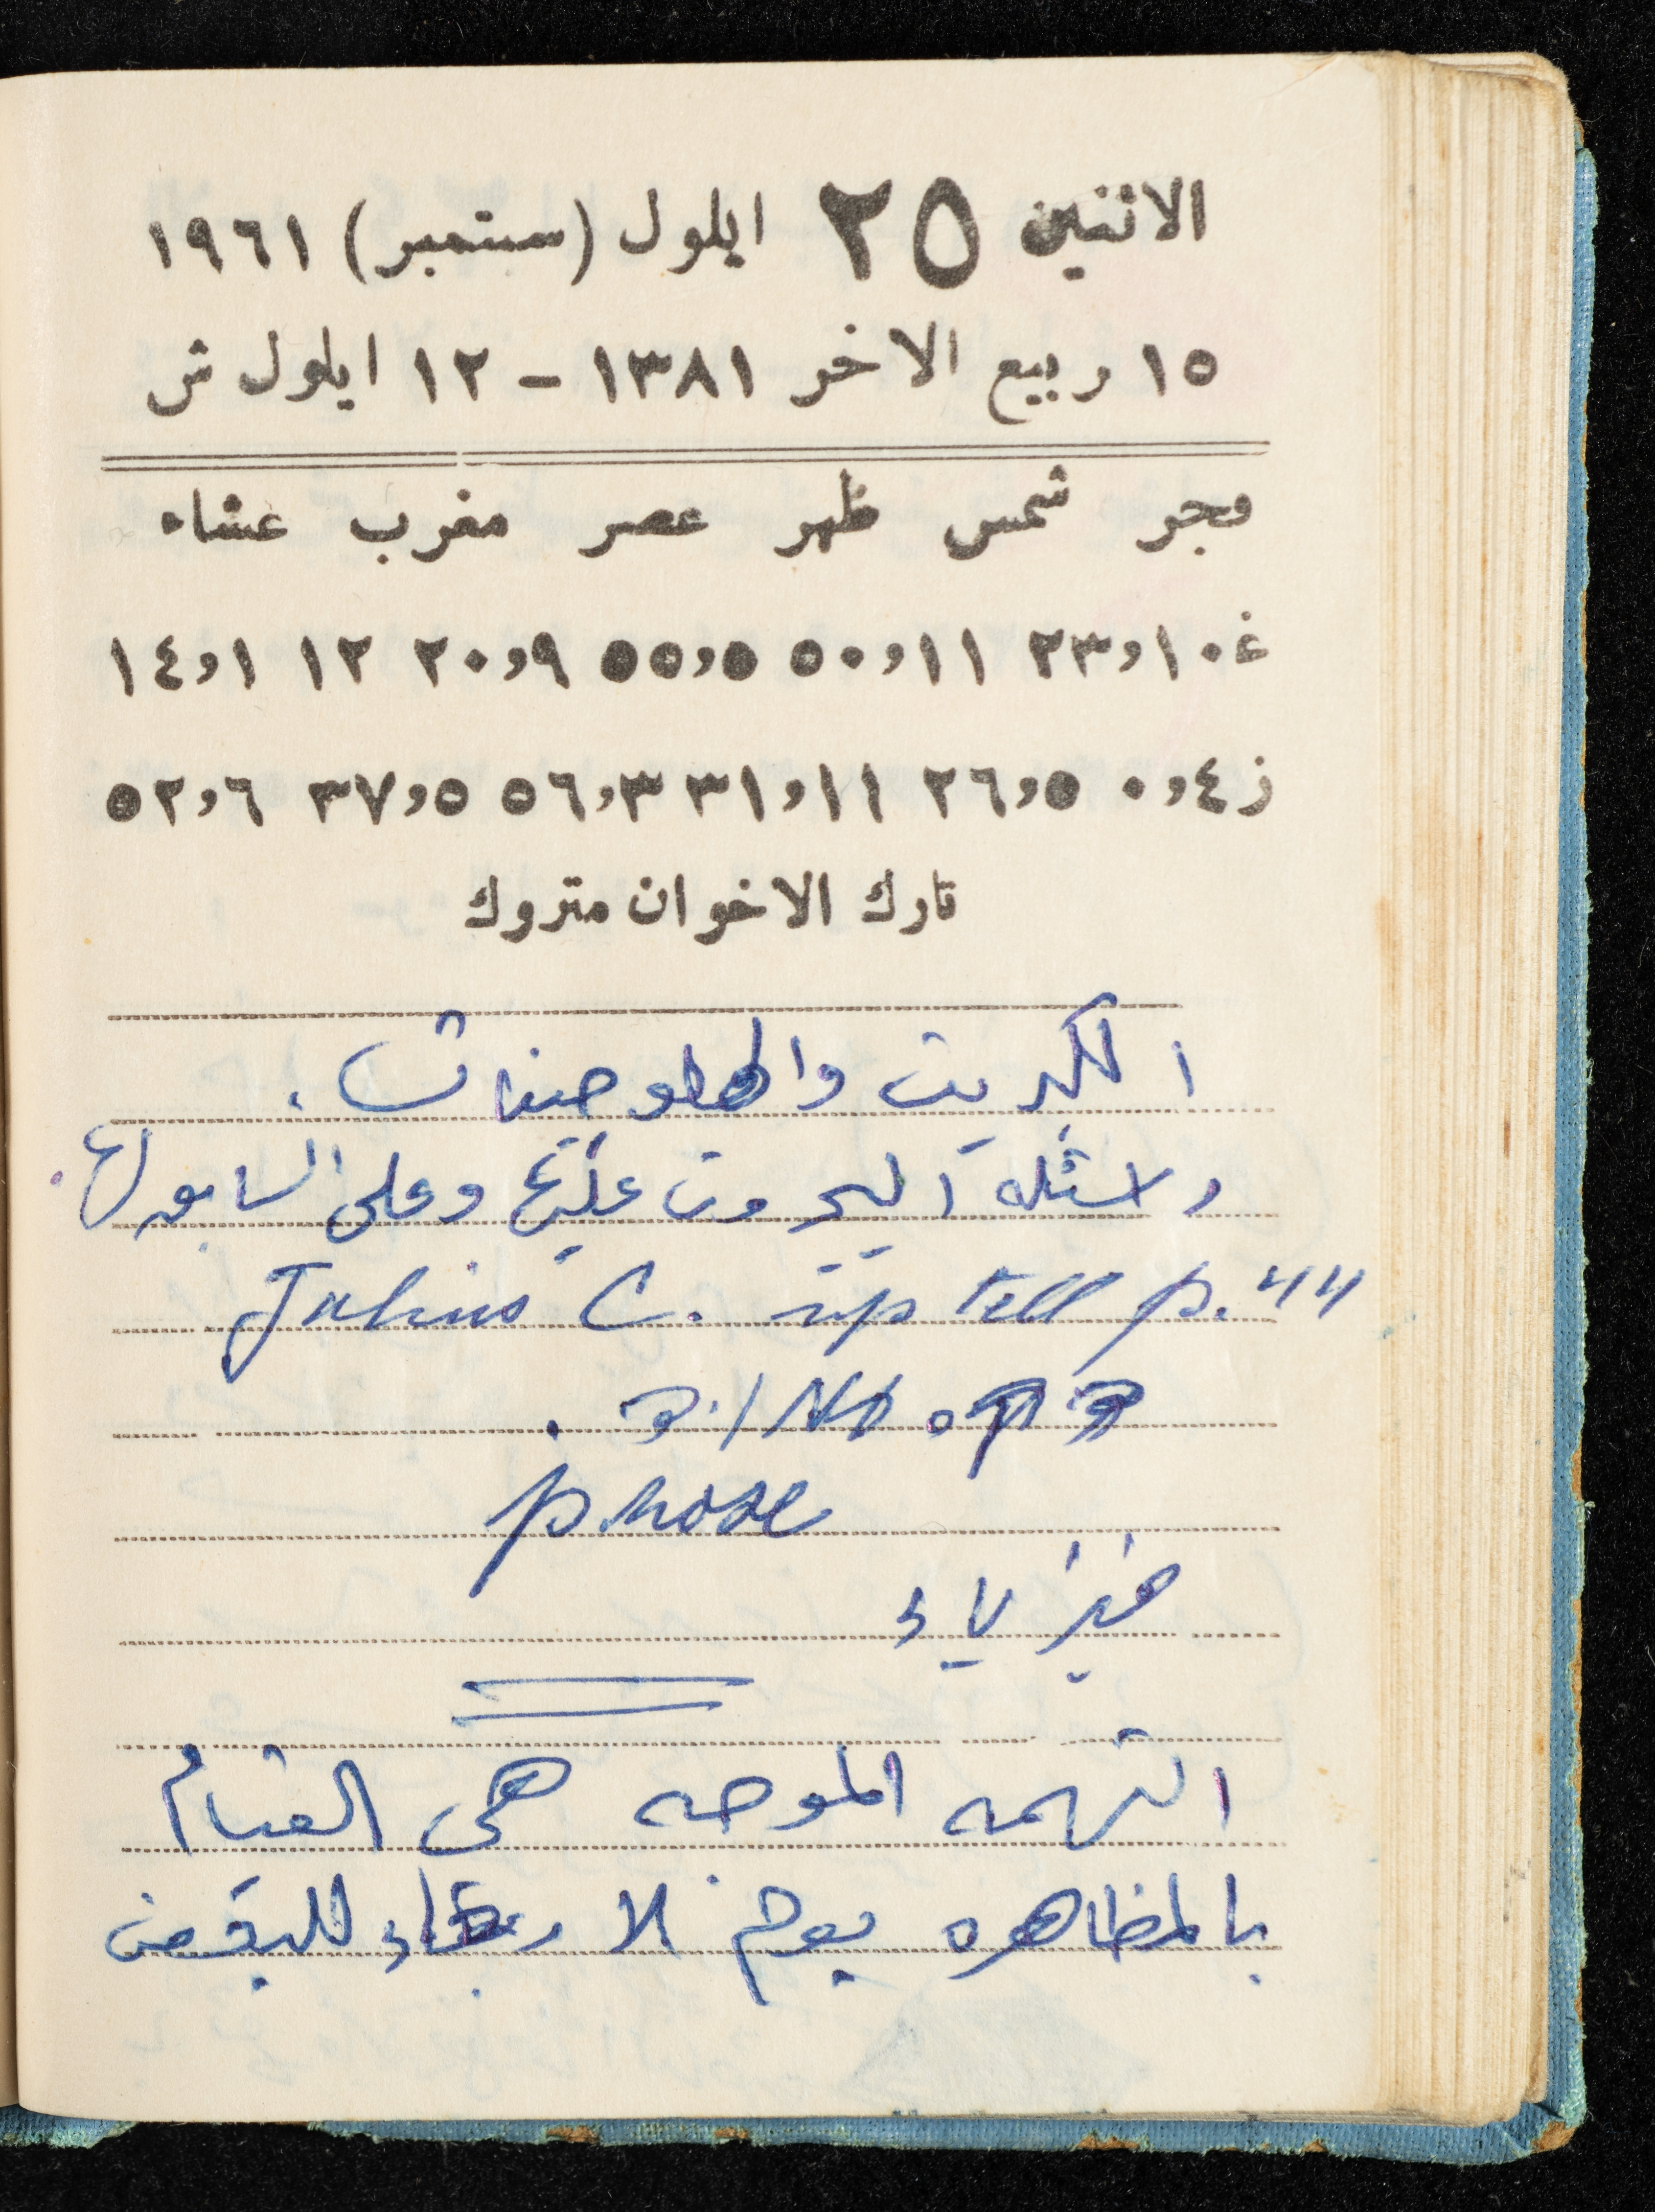 الاثنين ٢٥ ايلول (سبتمبر) ١٩٦١
١٥ ربيع الاخر ١٣٨١ - ١٢ ايلول ش
فجر شمس ظهر عصر مغرب عشاء
غ ١٠٫٢٣ ١١٫٥٠ ٥٫٥٥ ٩٫٢٠ ١٢ ١٫١٤
ز ٤٫٠ ٥٫٢٦ ١١٫٣١ ٣٫٥٦ ٥٫٣٧ ٦٫٥٢
تارك الاخوان متروك
الكبريت والهالوجينات.
واسئله البحروت عليها وعلى السابق لها.
Julius C. up tell p. 44
phose
فيزياء
التهمه الموجه هي القيام
بالمظاهره يوم الاربعاء للبقض